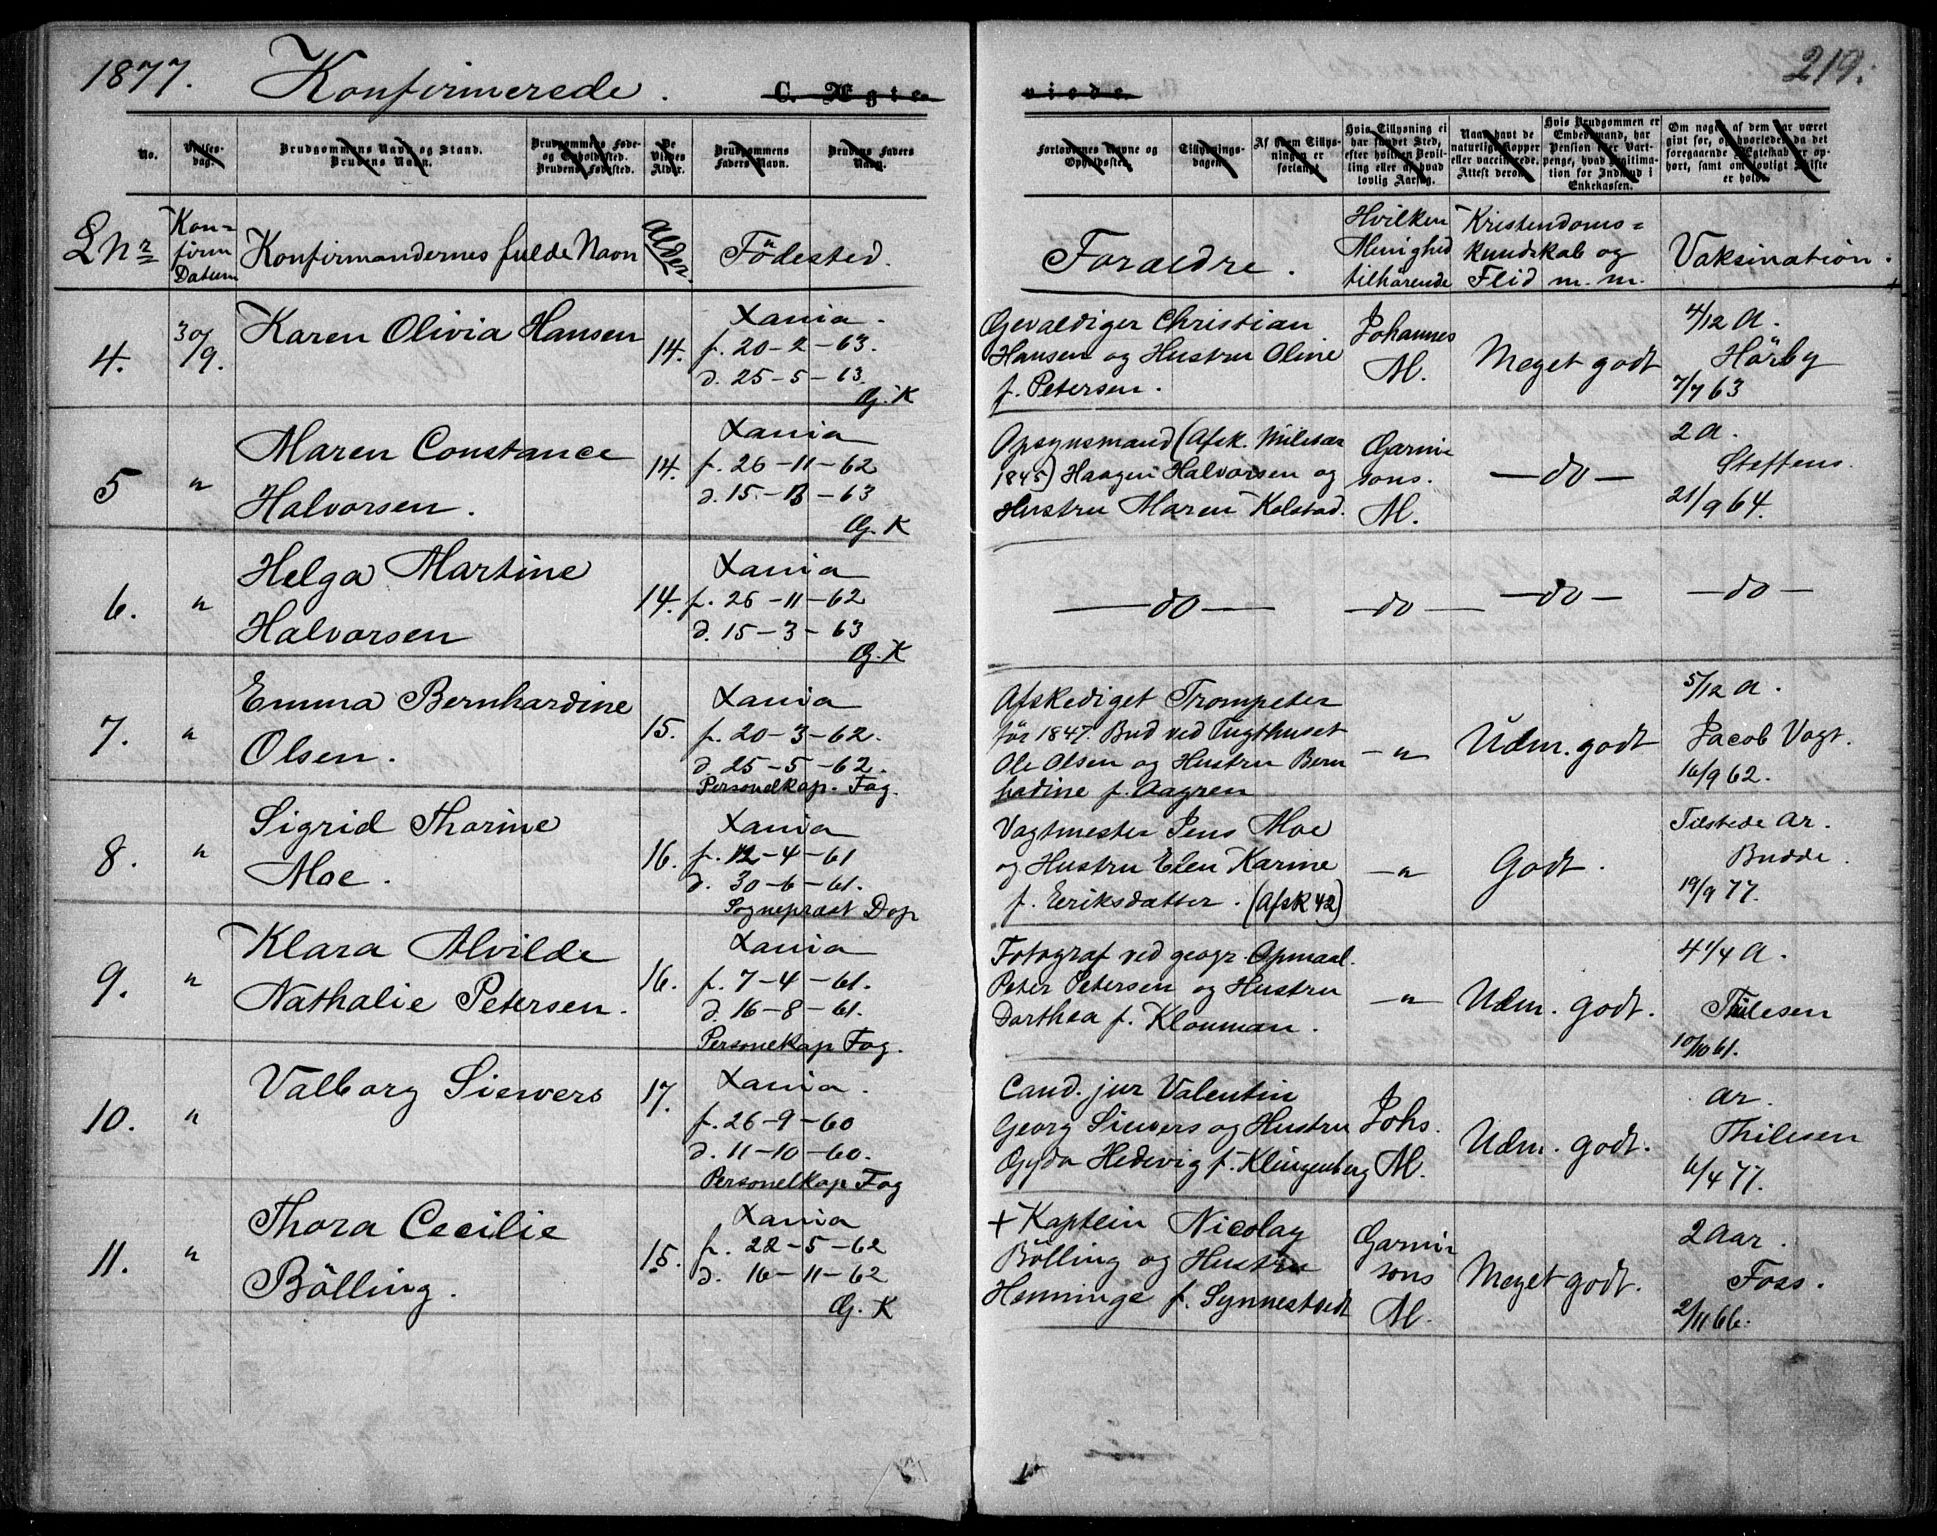 1877. Konfirmerede. C. Ægte-
viede. 219.
No.
Vielses-
dag.
Brudgommens Navn og Stand.
Brudens Navn.
Brudgommens Føde-
og Opholdssted.
Brudens Fødested.
De
Viedes
Alder.
Brudgommens
Faders Navn.
Brudens Faders
Navn.
Forlovernes Navne og
Opholdssted.
Tillysnings-
dagen.
Af hvem Tillys-
ningen er
forlangt.
Hvis Tillysning ei
har fundet Sted,
efter hvilken Bevil-
ling eller af hvad
lovlig Aarsag.
Naar havt de
naturlige Kopper
eller vaccinerede.
Attest derom.
Hvis Brudgommen er
Embedsmand, har
Pension eller Vart-
penge, hvad Legitima-
tion for Indskud i
Enkekassen.
Om nogen af dem har været
givt før, og hvorledes da det
foregaaende Ægteskab er op-
hørt, samt om lovligt Skifte
er holdt.
L Nr
Kon=
firm
Datum
Konfirmandernes fulde Navn
Alder.
Födested.
Foraeldre.
Hvilken
Menighed
tilhörende
Kristendoms=
kundskab og
Flid m. m.
Vaksination.
4.
30/9.
Karen Olivia Hansen
14.
Xania.
f. 20-2-63.
d. 25-5-63.
G. K
Gevaldiger Christian
Hansen og Hustru Oline
f. Petersen.
Johannes
M.
Meget godt
4/12 A.
Hörby
7/7 63
5
"
Maren Constance
Halvorsen.
14.
Xania
f. 26-11-62
d. 15-3-63
G. K
Opsynsmand (Afsk. Militær
1845) Haagen Halvorsen og
Hustru Maren Kolstad.
Garni
sons.
M.
— do —
2 A.
Steffens.
21/9 64.
6.
"
Helga Martine
Halvorsen
14.
Xania
f. 26-11-62
d. 15-3-63
G. K
— do —
— do —
— do —
— do —
7.
"
Emma Bernhardine
Olsen.
15.
Xania
f. 20-3-62.
d. 25-5-62.
Personelkap. Fog.
Afskediget Trompeter
för 1847. Bud ved Tugthuset
Ole Olsen og Hustru Bern
hadine f. Aagren
— " —
Udm. godt
5/12 A.
Jacob Vogt.
16/9 62.
8.
"
Sigrid Thorine
Moe.
16.
Xania
f. 12-4-61
d. 30-6-61.
Sognepræst Dop
Vagtmester Jens Moe
og Hustru Elen Karine
f. Eeriksdatter. (Afsk 42)
— " —
Godt.
Tilstede ar.
Budde.
19/9 77.
9.
"
Klara Alvilde
Nathalie Petersen.
16.
Xania
f. 7-4-61.
d. 16-8-61.
Personelkap Fog.
Fotograf ved geogr. Opmaal.
Peter Petersen og Hustru
Dorthea f. Klouman.
— " —
Udm. godt.
4 1/4 A.
Thilesen
10/10 61.
10.
"
Valborg Siewers
17.
Xania.
f. 26-9-60
d. 11-10-60.
Personelkap Fog
Cand. jur Valentin
Georg Siewers og Hustru
Gyda Hedevig f. Klingenberg
Johs.
M.
Udm. godt.
ar.
Thilesen
6/4 77.
11.
"
Thora Cecilie
Bölling.
15.
Xania
f. 22-5-62
d. 16-11-62
G. K
+ Kaptein Nicolay
Bölling og Hustru
Henninge f. Synnestvedt
Garni
sons
M.
Meget godt.
2 Aar.
Foss.
2/11 66.